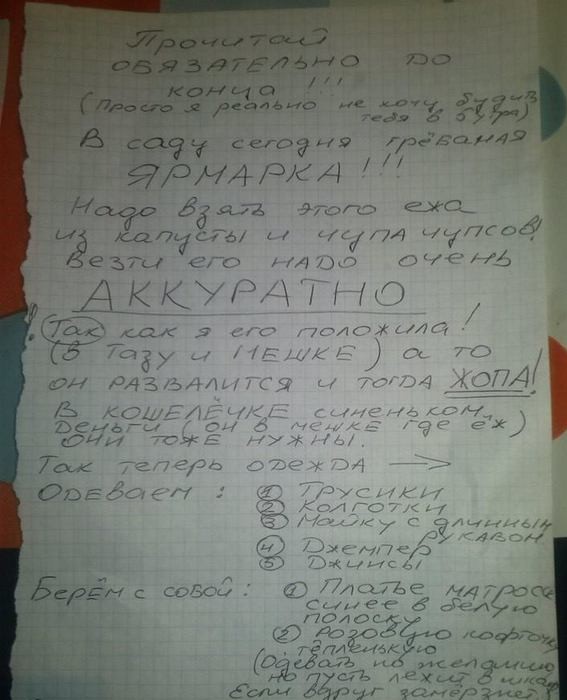 Прочитай
ОБЯЗАТЕЛЬНО ДО
конца !!!
(Просто я реально не хочу будить
тебя в 6 утра)
В саду сегодня грёбаная
ЯРМАРКА !!!
Надо взять этого ежа
из капусты и чупа чупсов!
Везти его НАДО очень
АККУРАТНО
! (Так) как я его положила!
(В Тазу и МЕШКЕ) а то
он РАЗВАЛИТСЯ и тогда ЖОПА!
В КОШЕЛЁЧКЕ синеньком
деньги (он в мешке где ёж)
они тоже нужны.
Так теперь ОДЕЖДА →
Одеваем : ① Трусики
② КОЛГОТКИ
③ Майку с длинным
РУКАВОМ
④ Джемпер
⑤ Джинсы
Берём с собой: ① Платье матроса
синее в белую
полоску
② Розовую кофточку
тёпленькую
(Одевать по желанию
но пусть лежит в шкаф
Если вдруг замёрзнет